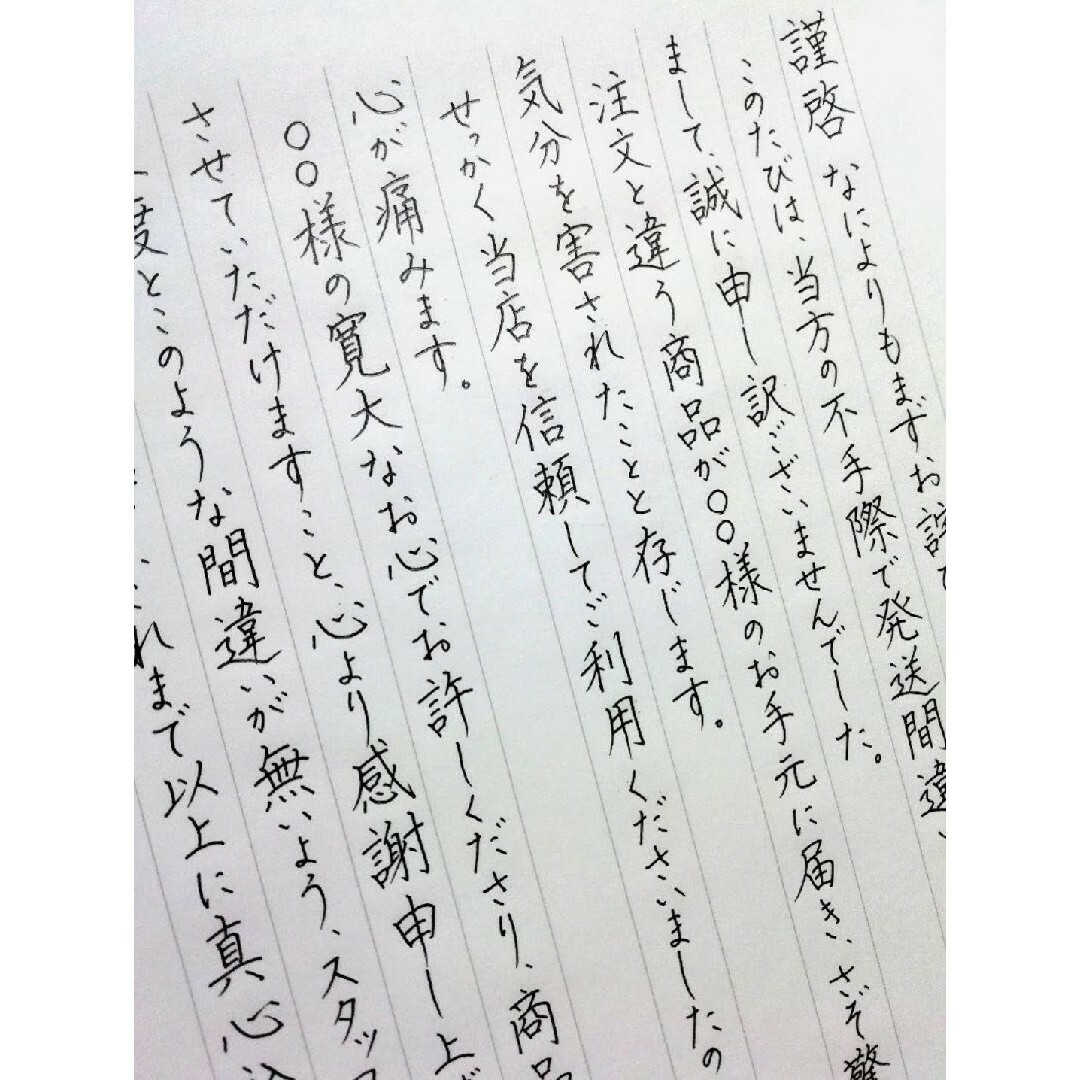 謹啓 なによりもまずお詫
このたびは、当方の不手際で発送間違い
まして、誠に申し訳ございませんでした。
注文と違う商品が〇〇様のお手元に届き、さぞ驚
気分を害されたことと存じます。
せっかく当店を信頼してご利用くださいましたの
心が痛みます。
〇〇様の寛大なお心でお許しくださり、商品
させていただけますこと、心より感謝申し上
度とこのような間違いが無いよう、スタッフ
れまで以上に真心込